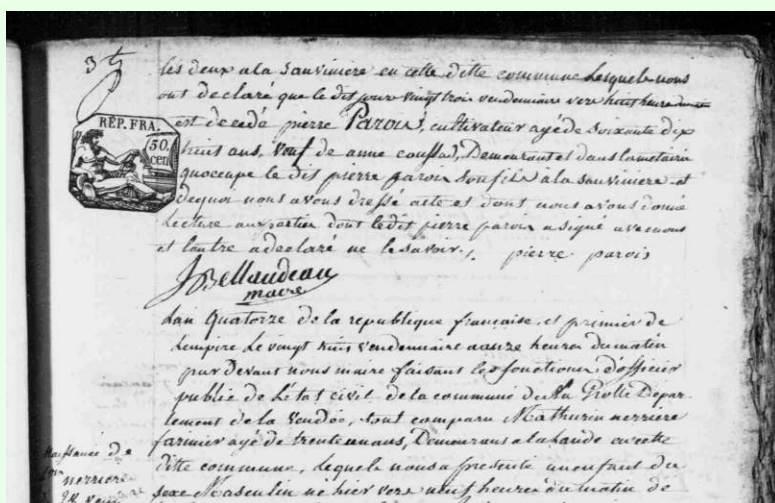 3
les deux a la Sauviniere en cette ditte commune Lesquels nous
ont declaré que le dit jour vingt trois vendemiaire vers huit heure
est decedé pierre Parois, cultivateur agé de Soixante dix
huit ans, veuf de anne Demeurant et dans la metairie
quoccupe le dit pierre parois Son fils a la Sauviniere et
dequoi nous avons dressé acte et dont nous avons donné
Lecture aux parties dont ledit pierre parois a signé avec nous
et l'autre a declaré ne le Savoir. pierre parois
REP. FRA.
50.
cen
JBellaudeau
maire
Lan Quatorze de la republique française, et premier de
Lempire Le vingt huit vendemiaire a onze heures du matin
par Devant nous maire faisant les fonctions d'officier
public de Letat civil de la commune de Depar-
tement de la Vendée, tout comparu Mathurin nerriere
farinier agé de trente un ans, Demeurant a la Lande en cette
ditte commune, lequel nous a presenté un enfant du
Sexe Masculin né hier vers neuf heures du matin de
Naissance de
nerriere